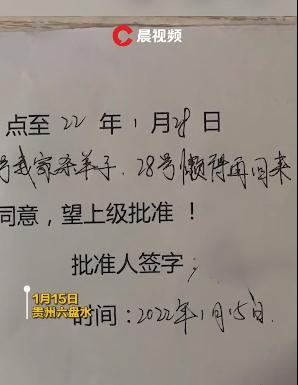 晨视频
点至 22 年 1 月 28 日
号我家杀羊子. 28号懒得再回来
同意，望上级批准！
批准人签字：
1月15日
贵州六盘水
时间：2022年1月15日.